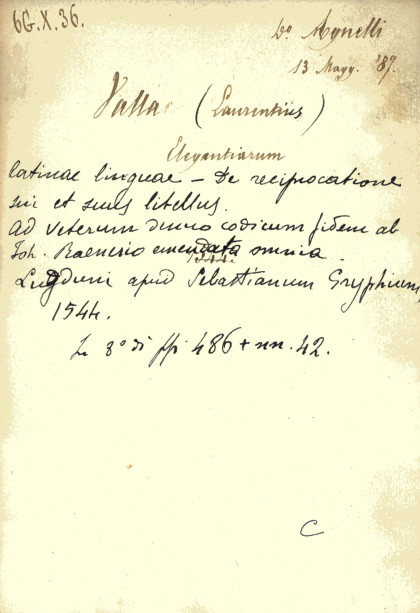 6G.X.36.
Do Agnelli
13 Magg. '87.
Vallae (Laurentius)
Elegantiarum
latinae linguae - De reciprocatione
sui et suus libellus.
Ad veterum denuo codicum fidem ab
Joh. Raenerio emendata omnia.
1544.
Lugduni apud Sebastianum Gryphium
1544.
In 8° di pp. 486 + nn. 42.
C